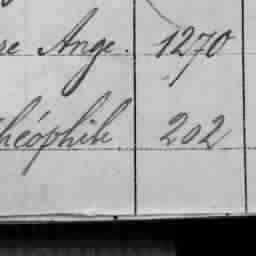 re Ange. 1270
Théophile. 202